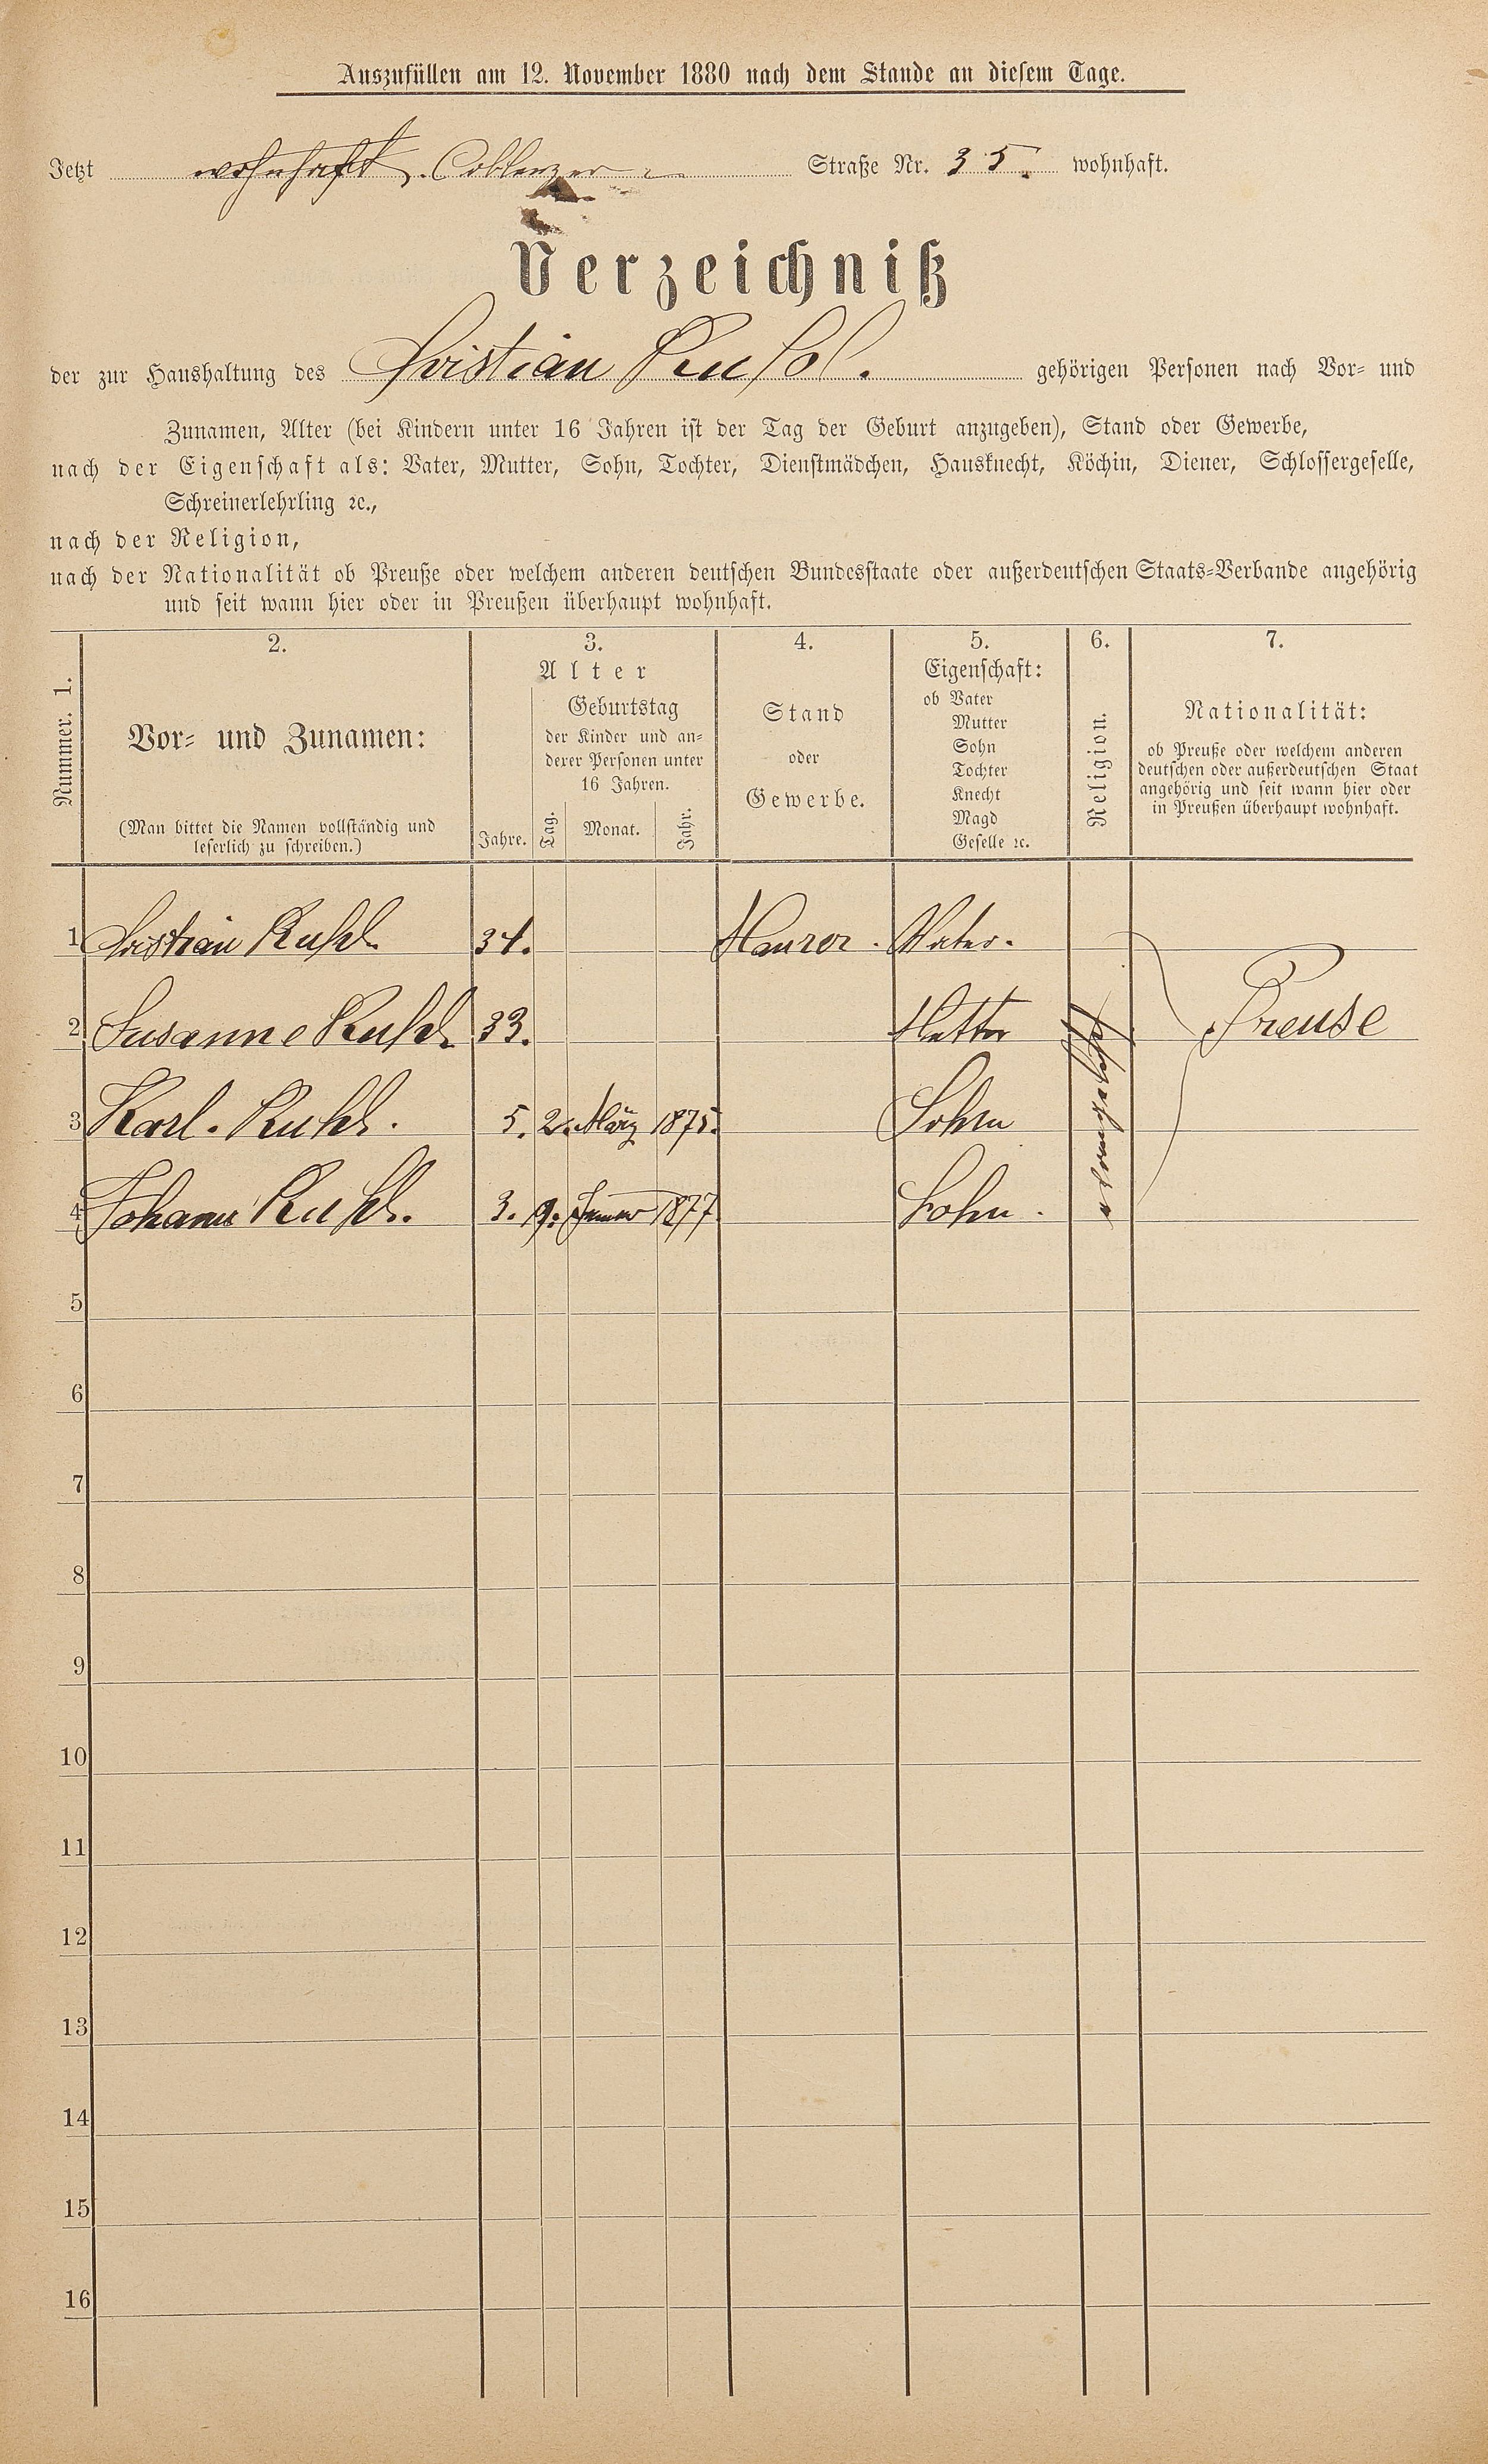 Auszufüllen am 12. November 1880 nach dem Stande an diesem Tage.
Jetzt wohnhaft. Coblenzer Straße Nr. 35. wohnhaft.
Verzeichniß
der zur Haushaltung des Cristian Ruhl. gehörigen Personen nach Vor- und
Zunamen, Alter (bei Kindern unter 16 Jahren ist der Tag der Geburt anzugeben), Stand oder Gewerbe,
nach der Eigenschaft als: Vater, Mutter, Sohn, Tochter, Dienstmädchen, Hausknecht, Köchin, Diener, Schlossergeselle,
Schreinerlehrling ꝛc.,
nach der Religion,
nach der Nationalität ob Preuße oder welchem anderen deutschen Bundesstaate oder außerdeutschen Staats-Verbande angehörig
und seit wann hier oder in Preußen überhaupt wohnhaft.
Nummer. 1.
2.
Vor- und Zunamen:
(Man bittet die Namen vollständig und
leserlich zu schreiben.)
3.
Alter
Jahre.
Geburtstag
der Kinder und an-
derer Personen unter
16 Jahren.
Tag. Monat. Jahr.
4.
Stand
oder
Gewerbe.
5.
Eigenschaft:
ob Vater
Mutter
Sohn
Tochter
Knecht
Magd
Geselle ꝛc.
6.
Religion.
7.
Nationalität:
ob Preuße oder welchem anderen
deutschen oder außerdeutschen Staat
angehörig und seit wann hier oder
in Preußen überhaupt wohnhaft.
1 Cristian Ruhl. 34. Maurer. Vater.
2 Susanne Ruhl. 33. Mutter Preuse
3 Karl. Ruhl. 5. 2. März 1875. Sohn
4 Johann Ruhl. 3. 9. Januar 1877 Sohn.
evangelisch
5
6
7
8
9
10
11
12
13
14
15
16